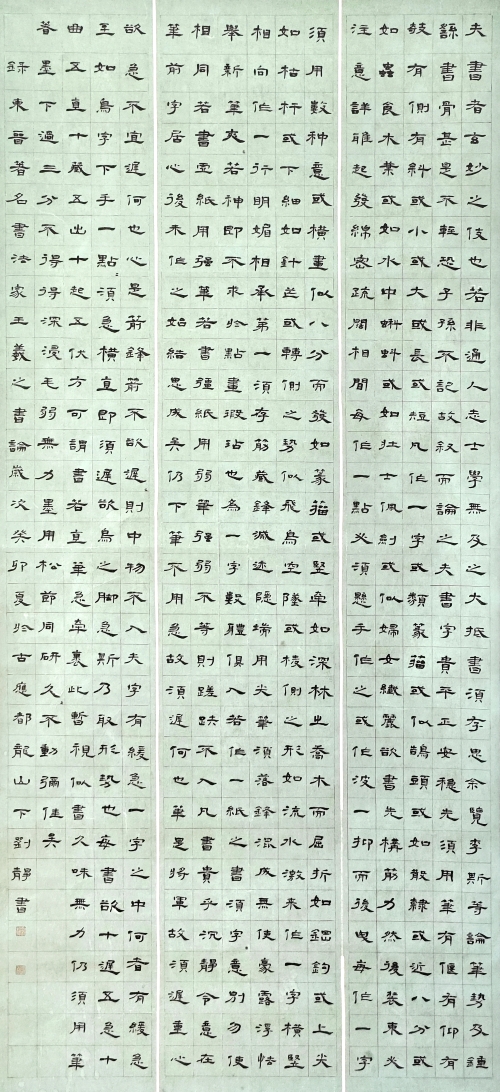 夫書者玄妙之伎也若非通人志士學無及之大抵書須存思余覽李斯等論筆勢及鍾
繇書骨甚是不輕恐子孫不記故敘而論之夫書字貴平正安穩先須用筆有偃有仰有
攲有側有斜或小或大或長或短凡作一字或類篆籀或似鵠頭或如散隸或近八分或
如蟲食木葉或如水中蝌蚪或如壯士佩劍或似婦女纖麗欲書先構筋力然後裝束必
注意詳雅起發綿密疏闊相間每作一點必須懸手作之或作波一抑而後曳每作一字
須用數種意或橫畫似八分而發如篆籀或豎牽如深林之喬木而屈折如鋼鉤或上尖
如枯杆或下細如針芒或轉側之勢似飛鳥空墜或棱側之形如流水激來作一字橫豎
相向作一行明媚相承第一須存筋藏鋒滅迹隱端用尖筆須落鋒混成無使毫露浮怯
舉新筆爽若神即不求於點畫瑕玷也為一字數體俱入若作一紙之書須字意別勿使
相同若書虛紙用強筆若書強紙用弱筆強弱不等則蹉跌不入凡書貴乎沉靜令意在
筆前字居心後未作之始結思成矣仍下筆不用急故須遲何也筆是將軍故須遲重心
欲急不宜遲何也心是箭鋒箭不欲遲則中物不入夫字有緩急一字之中何者有緩急
至如烏字下手一點須急橫直即須遲欲烏之腳急斯乃取形勢也每書欲十遲五急十
曲五直十藏五出十起五伏方可謂書若直筆急牽裹此暫視似書久味無力仍須用筆
著墨下過三分不得深浸毛弱無力墨用松節同研久不動彌佳矣
錄東晉著名書法家王羲之書論歲次癸卯夏於古應都龍山下劉靜書